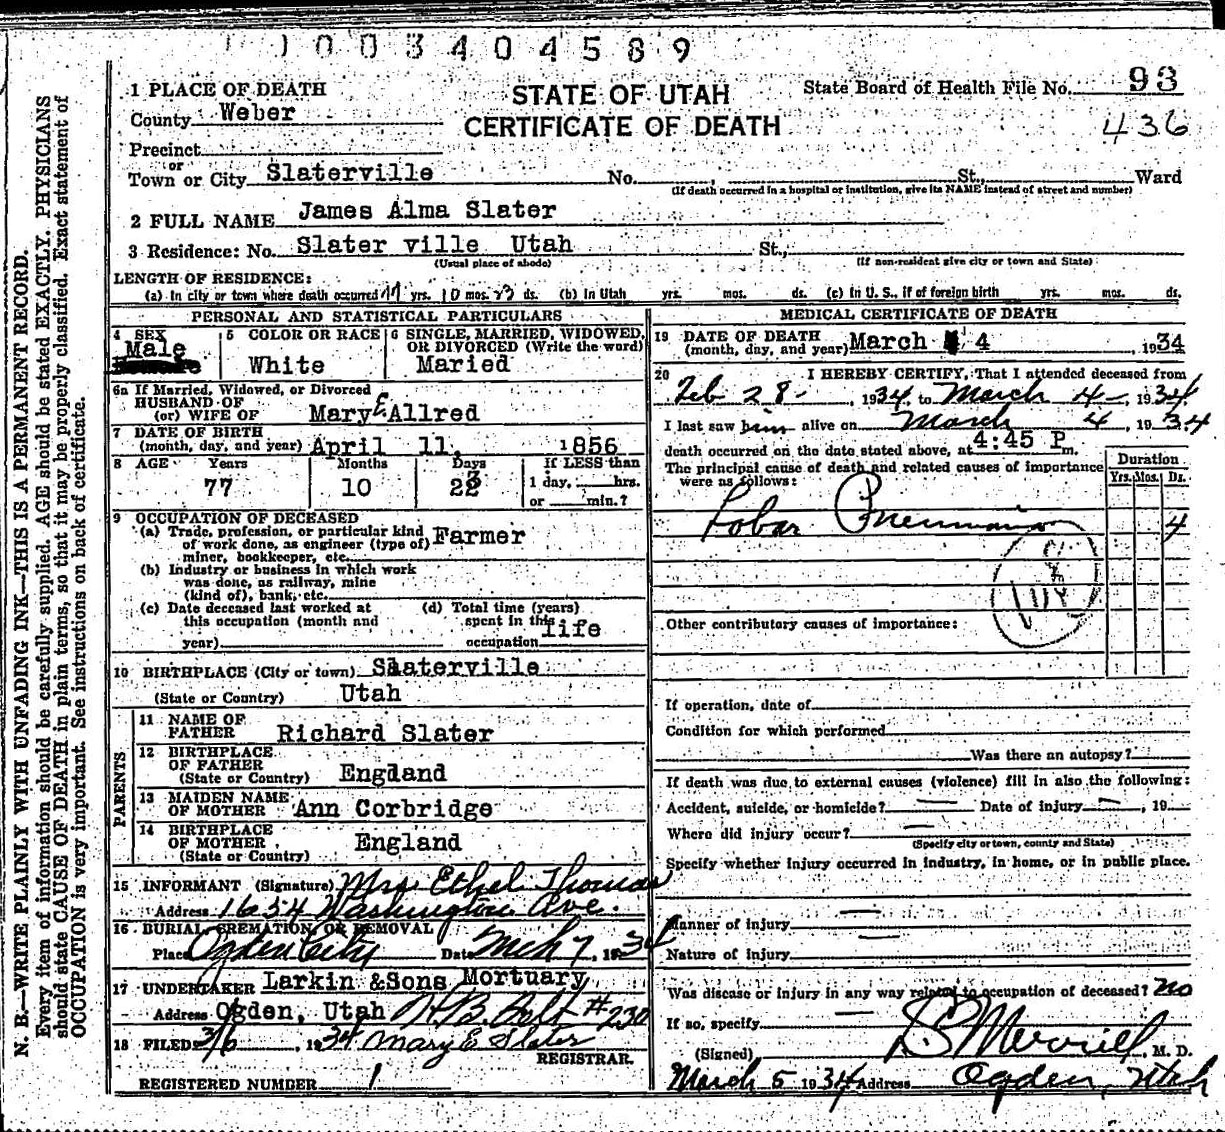 1003404589
1 PLACE OF DEATH
County Weber
STATE OF UTAH
CERTIFICATE OF DEATH
State Board of Health File No. 93
436
Precinct
or
Town or City Slaterville No. , St., Ward
(If death occurred in a hospital or institution, give its NAME instead of street and number)
2 FULL NAME James Alma Slater
3 Residence: No. Slater ville Utah St.,
(Usual place of abode) (If non-resident give city or town and State)
LENGTH OF RESIDENCE:
(a) In city or town where death occurred 77 yrs. 10 mos. 23 ds. (b) In Utah yrs. mos. ds. (c) In U. S., if of foreign birth yrs. mos. ds.
PERSONAL AND STATISTICAL PARTICULARS
4 SEX Male
5 COLOR OR RACE White
6 SINGLE, MARRIED, WIDOWED, OR DIVORCED (Write the word) Maried
6a If Married, Widowed, or Divorced
HUSBAND OF
(or) WIFE OF Mary E Allred
7 DATE OF BIRTH
(month, day, and year) April 11, 1856
8 AGE Years Months Days If LESS than
77 10 23 1 day, hrs.
or min.?
9 OCCUPATION OF DECEASED
(a) Trade, profession, or particular kind
of work done, as engineer (type of) Farmer
miner, bookkeeper, etc.
(b) Industry or business in which work
was done, as railway, mine
(kind of), bank, etc.
(c) Date deceased last worked at
this occupation (month and
year)
(d) Total time (years)
spent in this
occupation life
10 BIRTHPLACE (City or town) Slaterville
(State or Country) Utah
PARENTS
11 NAME OF
FATHER Richard Slater
12 BIRTHPLACE
OF FATHER
(State or Country) England
13 MAIDEN NAME
OF MOTHER Ann Corbridge
14 BIRTHPLACE
OF MOTHER
(State or Country) England
15 INFORMANT (Signature) Mrs Ethel Thomas
Address 1654 Washington Ave.
16 BURIAL, CREMATION, OR REMOVAL
Place Ogden City Date Mch 7, 1934
17 UNDERTAKER Larkin &Sons Mortuary
Address Ogden, Utah #230
18 FILED 3/6, 1934 Mary E Slater
REGISTRAR.
REGISTERED NUMBER 1
MEDICAL CERTIFICATE OF DEATH
19 DATE OF DEATH
(month, day, and year) March 4 , 1934
20 I HEREBY CERTIFY, That I attended deceased from
Feb 28-, 1934 to March 4-, 1934
I last saw him alive on March 4, 1934
death occurred on the date stated above, at 4:45 P m.
The principal cause of death and related causes of importance
were as follows:
Duration
Yrs. Mos. Ds.
Lobar Pneumonia 4
108
Other contributory causes of importance:
If operation, date of
Condition for which performed
Was there an autopsy?
If death was due to external causes (violence) fill in also the following:
Accident, suicide, or homicide? — Date of injury —, 19
Where did injury occur? —
(Specify city or town, county and State)
Specify whether injury occurred in industry, in home, or in public place.
Manner of injury —
Nature of injury —
Was disease or injury in any way related to occupation of deceased? no
If so, specify —
(Signed) Merrill, M. D.
March 5 1934 Address Ogden, Utah
N. B.—WRITE PLAINLY WITH UNFADING INK—THIS IS A PERMANENT RECORD.
Every item of information should be carefully supplied. AGE should be stated EXACTLY. PHYSICIANS
should state CAUSE OF DEATH in plain terms, so that it may be properly classified. Exact statement of
OCCUPATION is very important. See instructions on back of certificate.